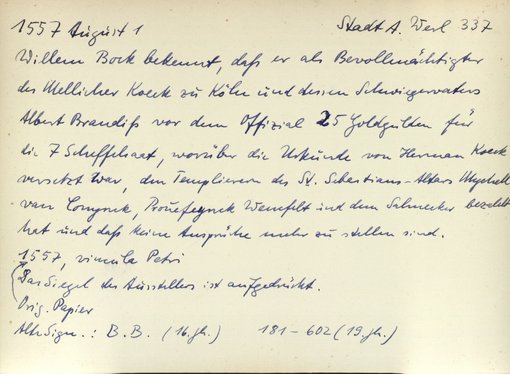 1557 August 1 Stadt A. Werl 337
Willem Bock bekennt, daß er als Bevollmächtigter
des Mellicher Koeck zu Köln und dessen Schwiegervaters
Albert Brandiß vor dem Offizial 25 Goldgulden für
die 7 Scheffelsaat, worüber die Urkunde von Herman Koeck
versetzt war, den Templierern des St. Sebastians-Altars
van und dem bezahlt
hat und daß keine Ansprüche mehr zu stellen sind.
1557, vincula Petri
Das Siegel des Ausstellers ist aufgedrückt.
Orig. Papier
Alte Sign.: B.B. (16. Jh.) 181-602 (19. Jh.)